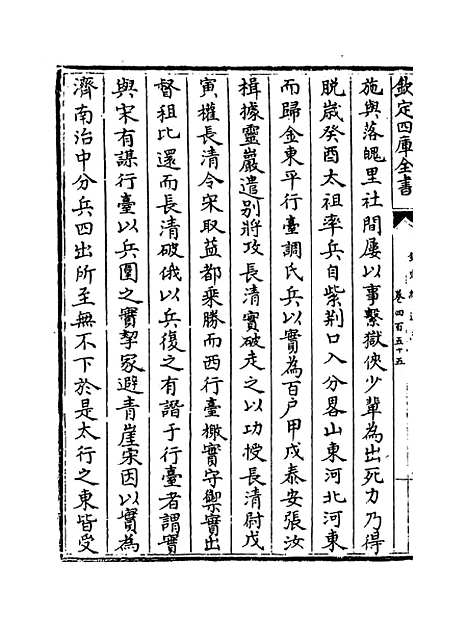 欽定四庫全書
卷四百五十五
施與落魄里社間屢以事繫獄俠少輩為出死力乃得
脱歲癸酉太祖率兵自紫荆口入分畧山東河北河東
而歸金東平行臺調氏兵以實為百户甲戌泰安張汝
楫據靈巖遣别將攻長清實破走之以功授長清尉戊
寅權長清令宋取益都乗勝而西行臺檄實守禦實出
督租比還而長清破俄以兵復之有譖于行臺者謂實
與宋有謀行臺以兵圍之實挈家避青崖宋因以實為
濟南治中分兵四出所至無不下於是太行之東皆受